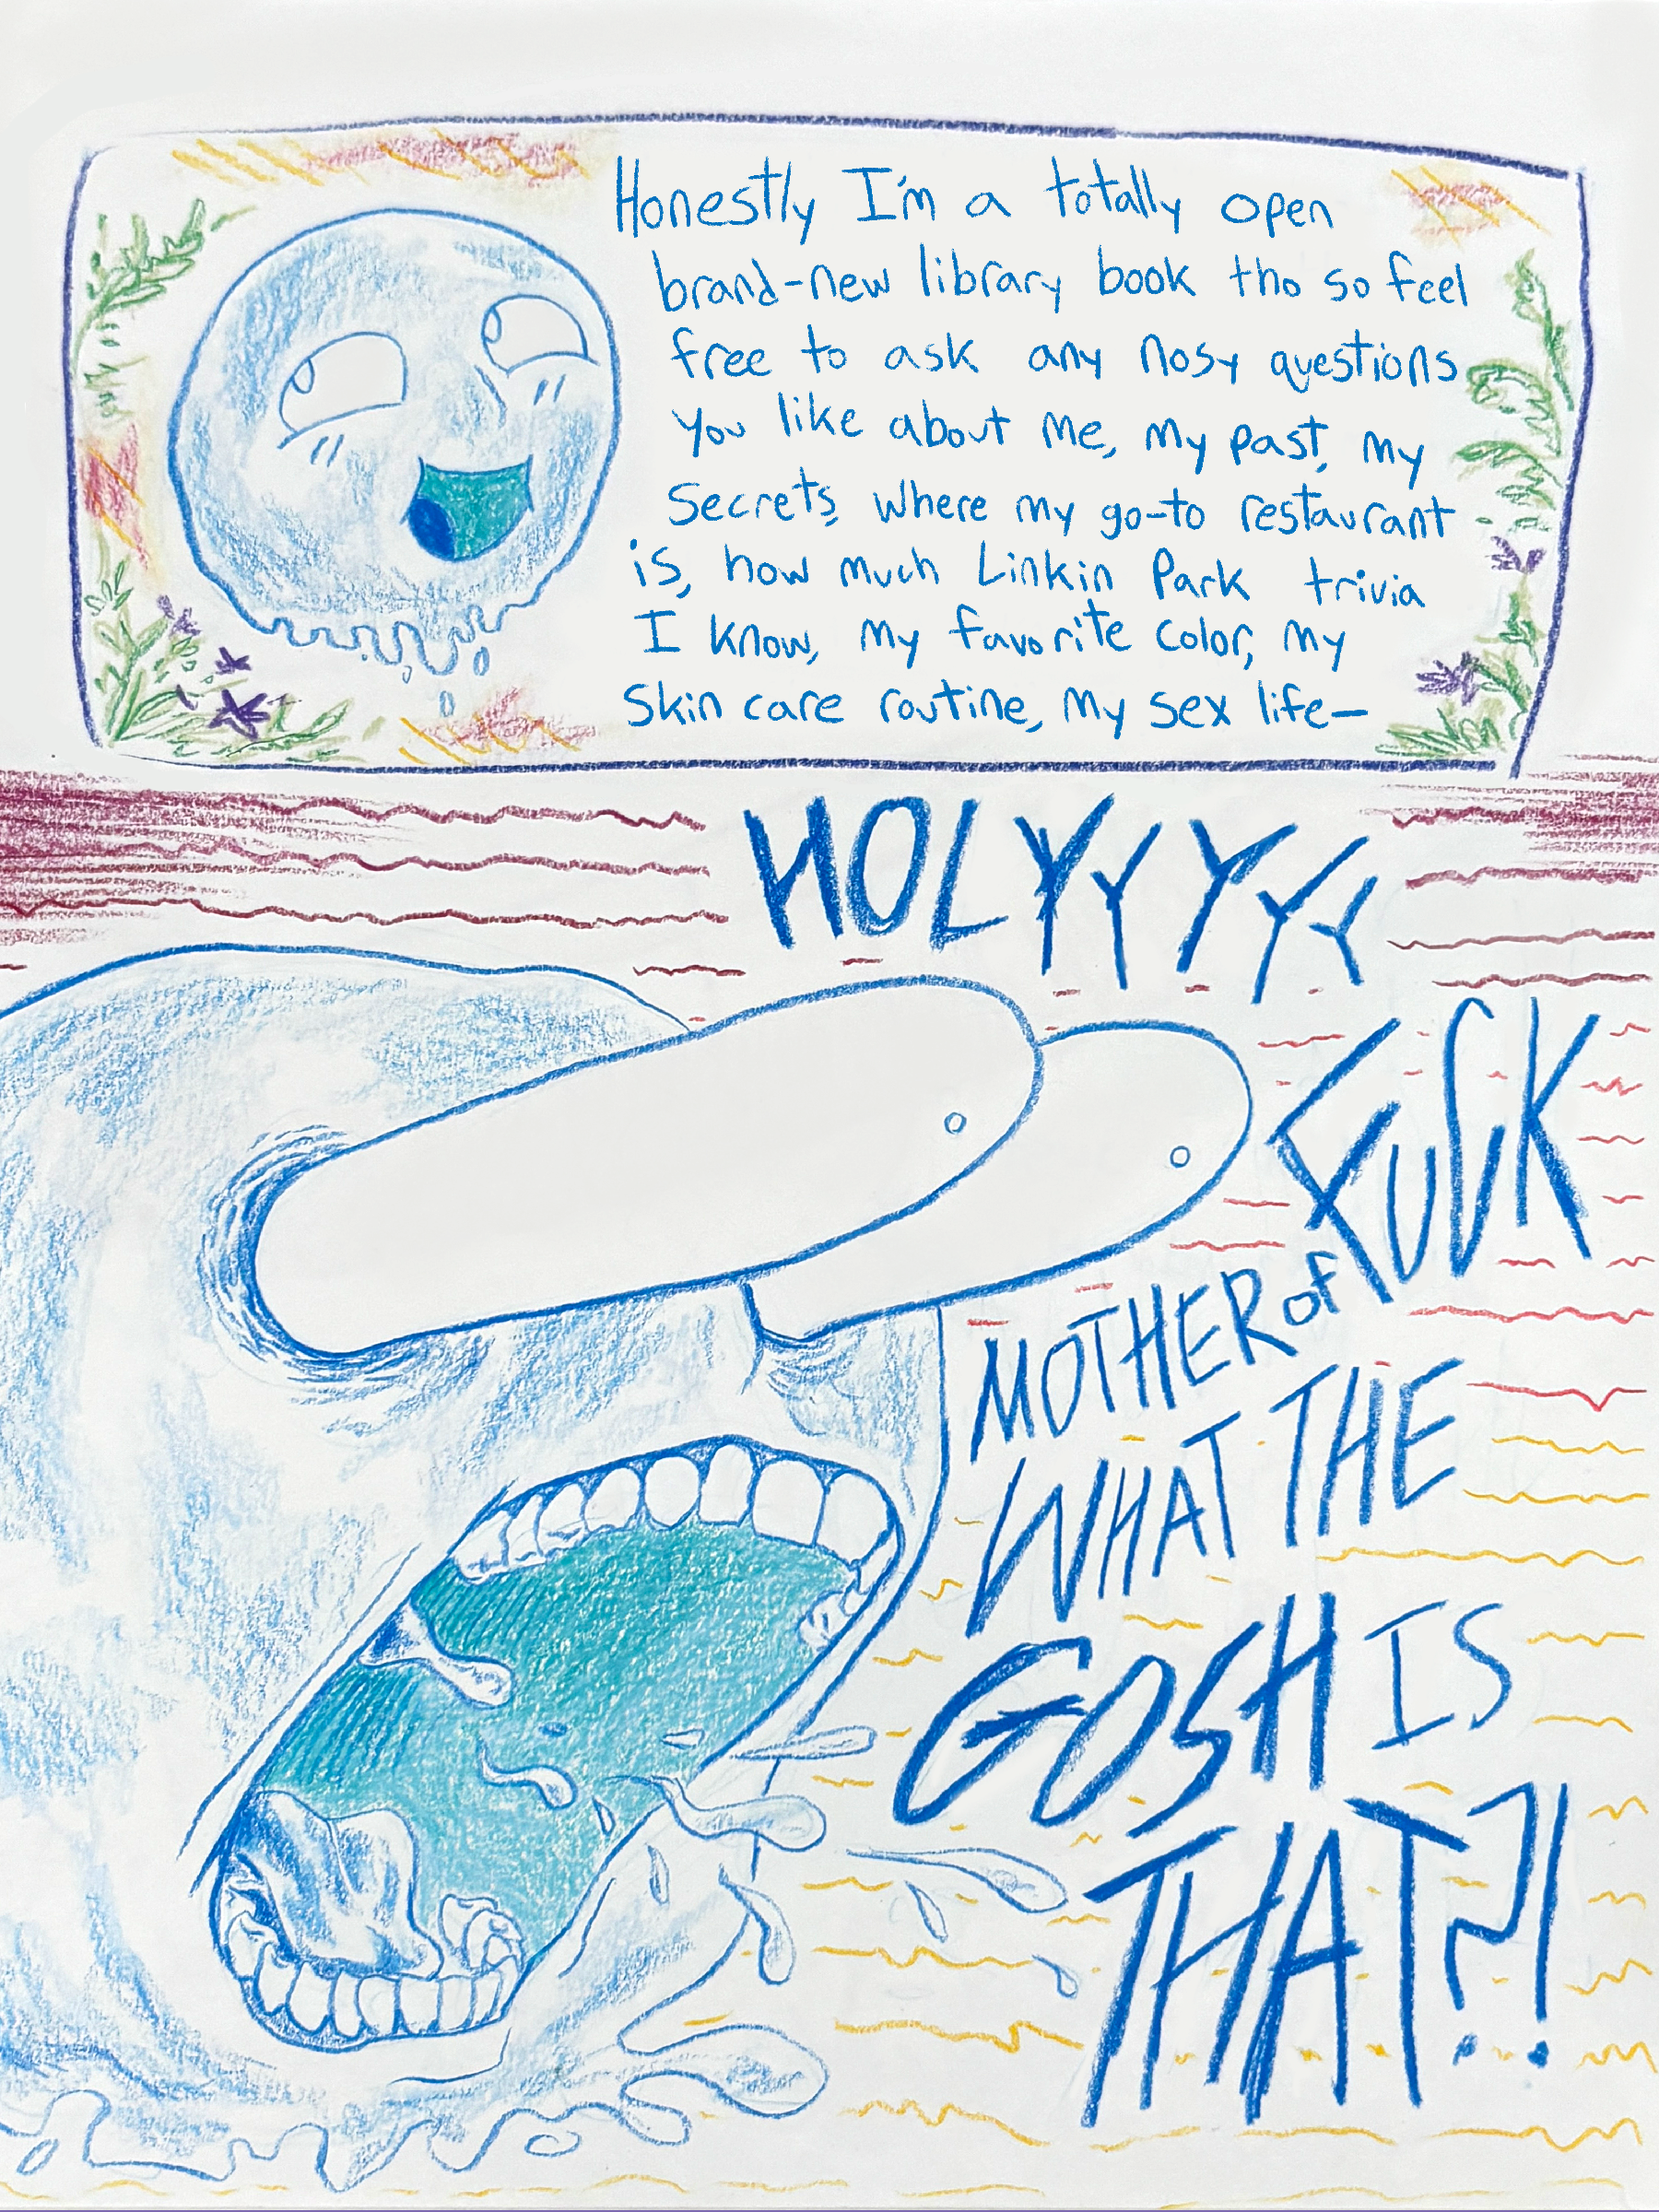 Honestly I'm a totally open
brand-new library book tho so feel
free to ask any nosy questions
you like about me, my past, my
secrets, where my go-to restaurant
is, how much Linkin Park trivia
I know, my favorite color, my
skin care routine, my sex life—
HOLYYYYY
FUCK
MOTHER of
WHAT THE
GOSH IS
THAT?!